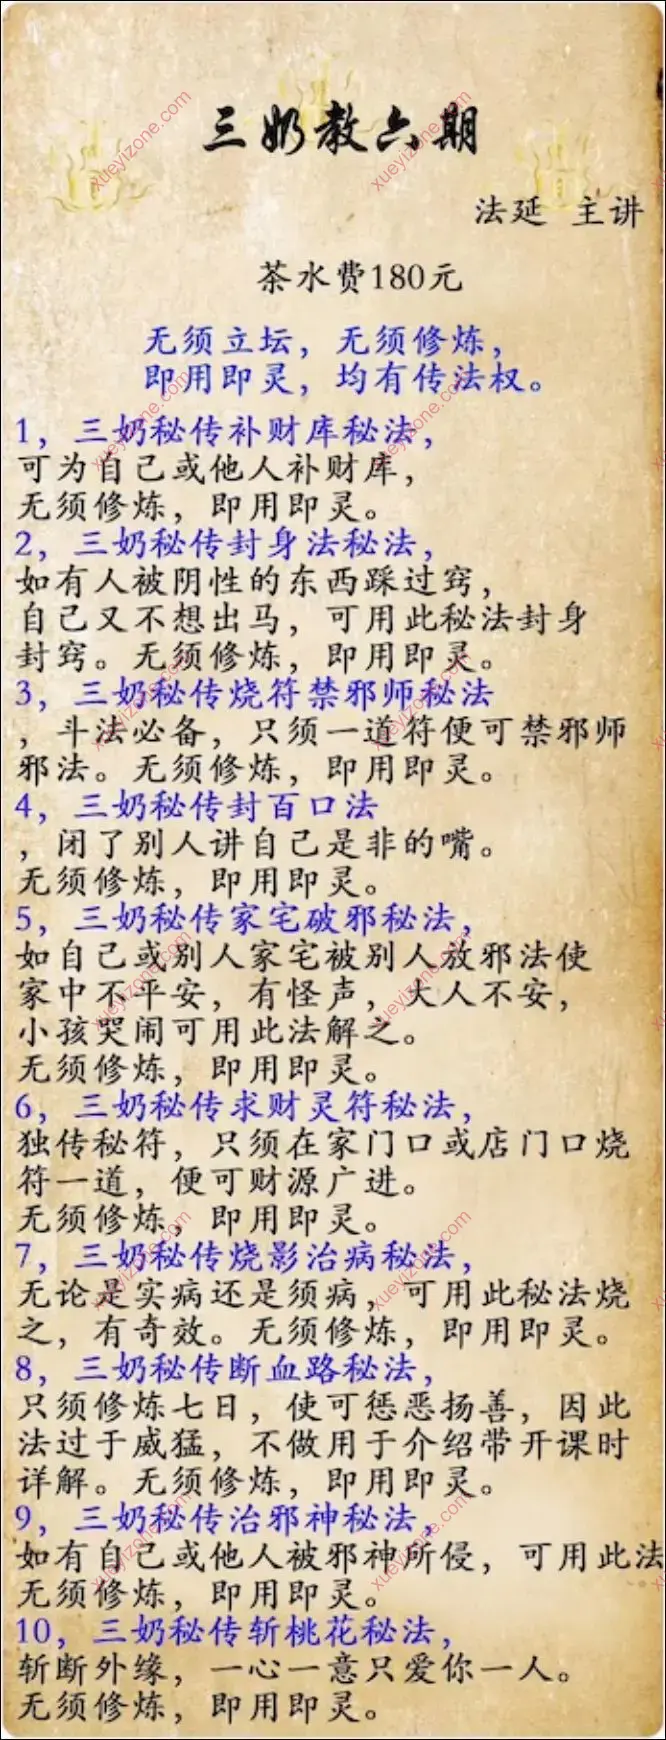 三奶教六期
法延 主讲
茶水费180元
无须立坛，无须修炼，
即用即灵，均有传法权。
1，三奶秘传补财库秘法，
可为自己或他人补财库，
无须修炼，即用即灵。
2，三奶秘传封身法秘法，
如有人被阴性的东西踩过窍，
自己又不想出马，可用此秘法封身
封窍。无须修炼，即用即灵。
3，三奶秘传烧符禁邪师秘法
，斗法必备，只须一道符便可禁邪师
邪法。无须修炼，即用即灵。
4，三奶秘传封百口法
，闭了别人讲自己是非的嘴。
无须修炼，即用即灵。
5，三奶秘传家宅破邪秘法，
如自己或别人家宅被别人放邪法使
家中不平安，有怪声，大人不安，
小孩哭闹可用此法解之。
无须修炼，即用即灵。
6，三奶秘传求财灵符秘法，
独传秘符，只须在家门口或店门口烧
符一道，便可财源广进。
无须修炼，即用即灵。
7，三奶秘传烧影治病秘法，
无论是实病还是须病，可用此秘法烧
之，有奇效。无须修炼，即用即灵。
8，三奶秘传断血路秘法，
只须修炼七日，使可惩恶扬善，因此
法过于威猛，不做用于介绍带开课时
详解。无须修炼，即用即灵。
9，三奶秘传治邪神秘法，
如有自己或他人被邪神所侵，可用此法
无须修炼，即用即灵。
10，三奶秘传斩桃花秘法，
斩断外缘，一心一意只爱你一人。
无须修炼，即用即灵。
xueyizone.com
xueyizone.com
xueyizone.com
xueyizone.com
xueyizone.com
xueyizone.com
xueyizone.com
xueyizone.com
xueyizone.com
xueyizone.com
xueyizone.com
xueyizone.com